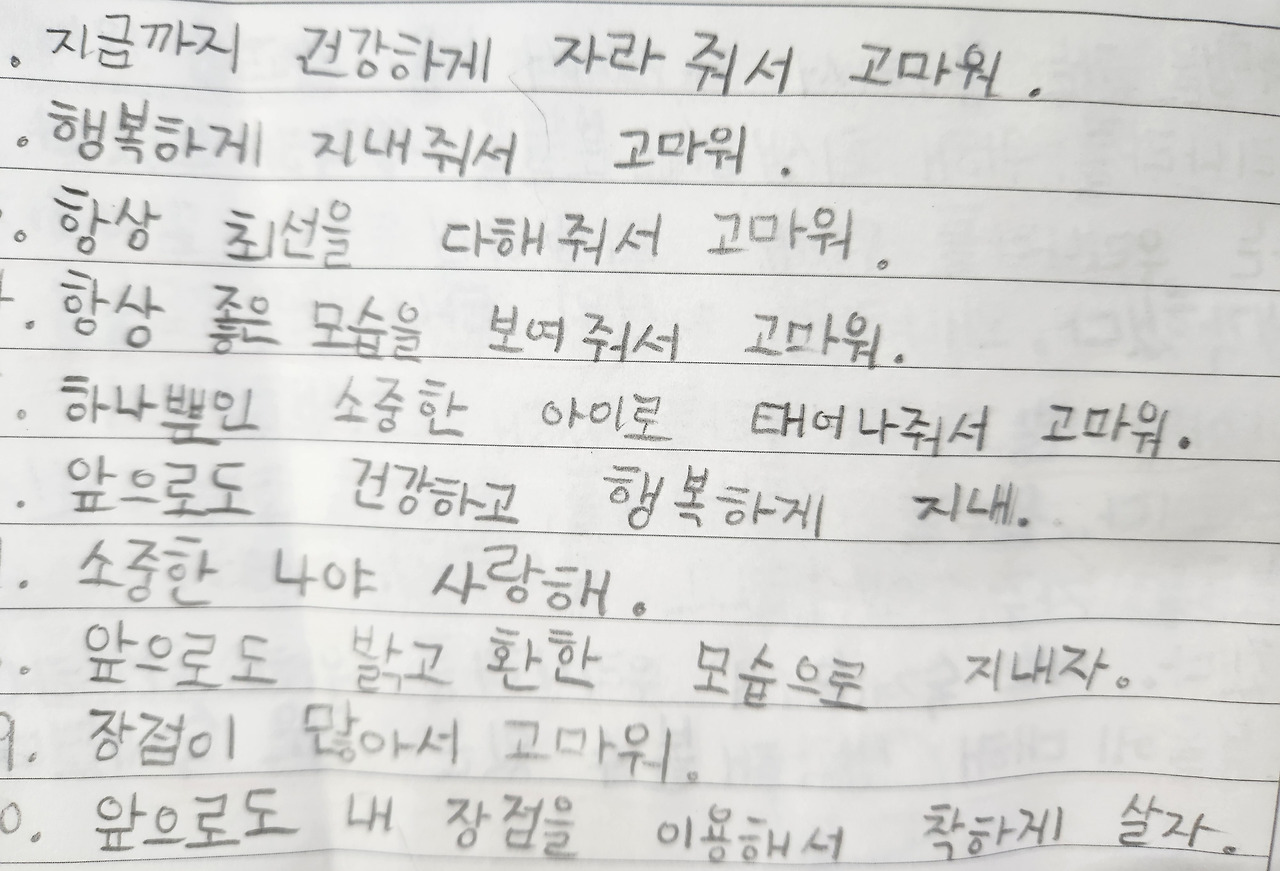 . 지금까지 건강하게 자라 줘서 고마워.
. 행복하게 지내줘서 고마워.
. 항상 최선을 다해줘서 고마워.
. 항상 좋은 모습을 보여줘서 고마워.
. 하나뿐인 소중한 아이로 태어나줘서 고마워.
. 앞으로도 건강하고 행복하게 지내.
. 소중한 나야 사랑해.
. 앞으로도 밝고 환한 모습으로 지내자.
9. 장점이 많아서 고마워.
0. 앞으로도 내 장점을 이용해서 착하게 살자.